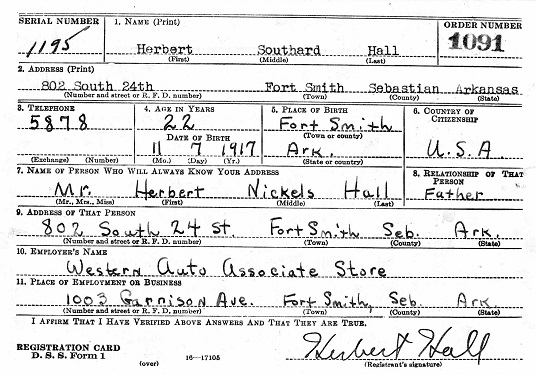 SERIAL NUMBER 1. NAME (Print) ORDER NUMBER
1195 Herbert Southard Hall 1091
(First) (Middle) (Last)
2. ADDRESS (Print)
802 South 24th Fort Smith Sebastian Arkansas
(Number and street or R. F. D. number) (Town) (County) (State)
3. TELEPHONE 4. AGE IN YEARS 5. PLACE OF BIRTH 6. COUNTRY OF CITIZENSHIP
5878 22 Fort Smith
DATE OF BIRTH (Town or county)
11 7 1917 Ark. U.S.A.
(Exchange) (Number) (Mo.) (Day) (Yr.) (State or country)
7. NAME OF PERSON WHO WILL ALWAYS KNOW YOUR ADDRESS 8. RELATIONSHIP OF THAT PERSON
Mr. Herbert Nickels Hall Father
(Mr., Mrs., Miss) (First) (Middle) (Last)
9. ADDRESS OF THAT PERSON
802 South 24 St. Fort Smith Seb. Ark.
(Number and street or R. F. D. number) (Town) (County) (State)
10. EMPLOYER'S NAME
Western Auto Associate Store
11. PLACE OF EMPLOYMENT OR BUSINESS
1003 Garrison Ave. Fort Smith, Seb. Ark.
(Number and street or R. F. D. number) (Town) (County) (State)
I AFFIRM THAT I HAVE VERIFIED ABOVE ANSWERS AND THAT THEY ARE TRUE.
REGISTRATION CARD Herbert Hall
D. S. S. Form 1 16—17105 (Registrant's signature)
(over)